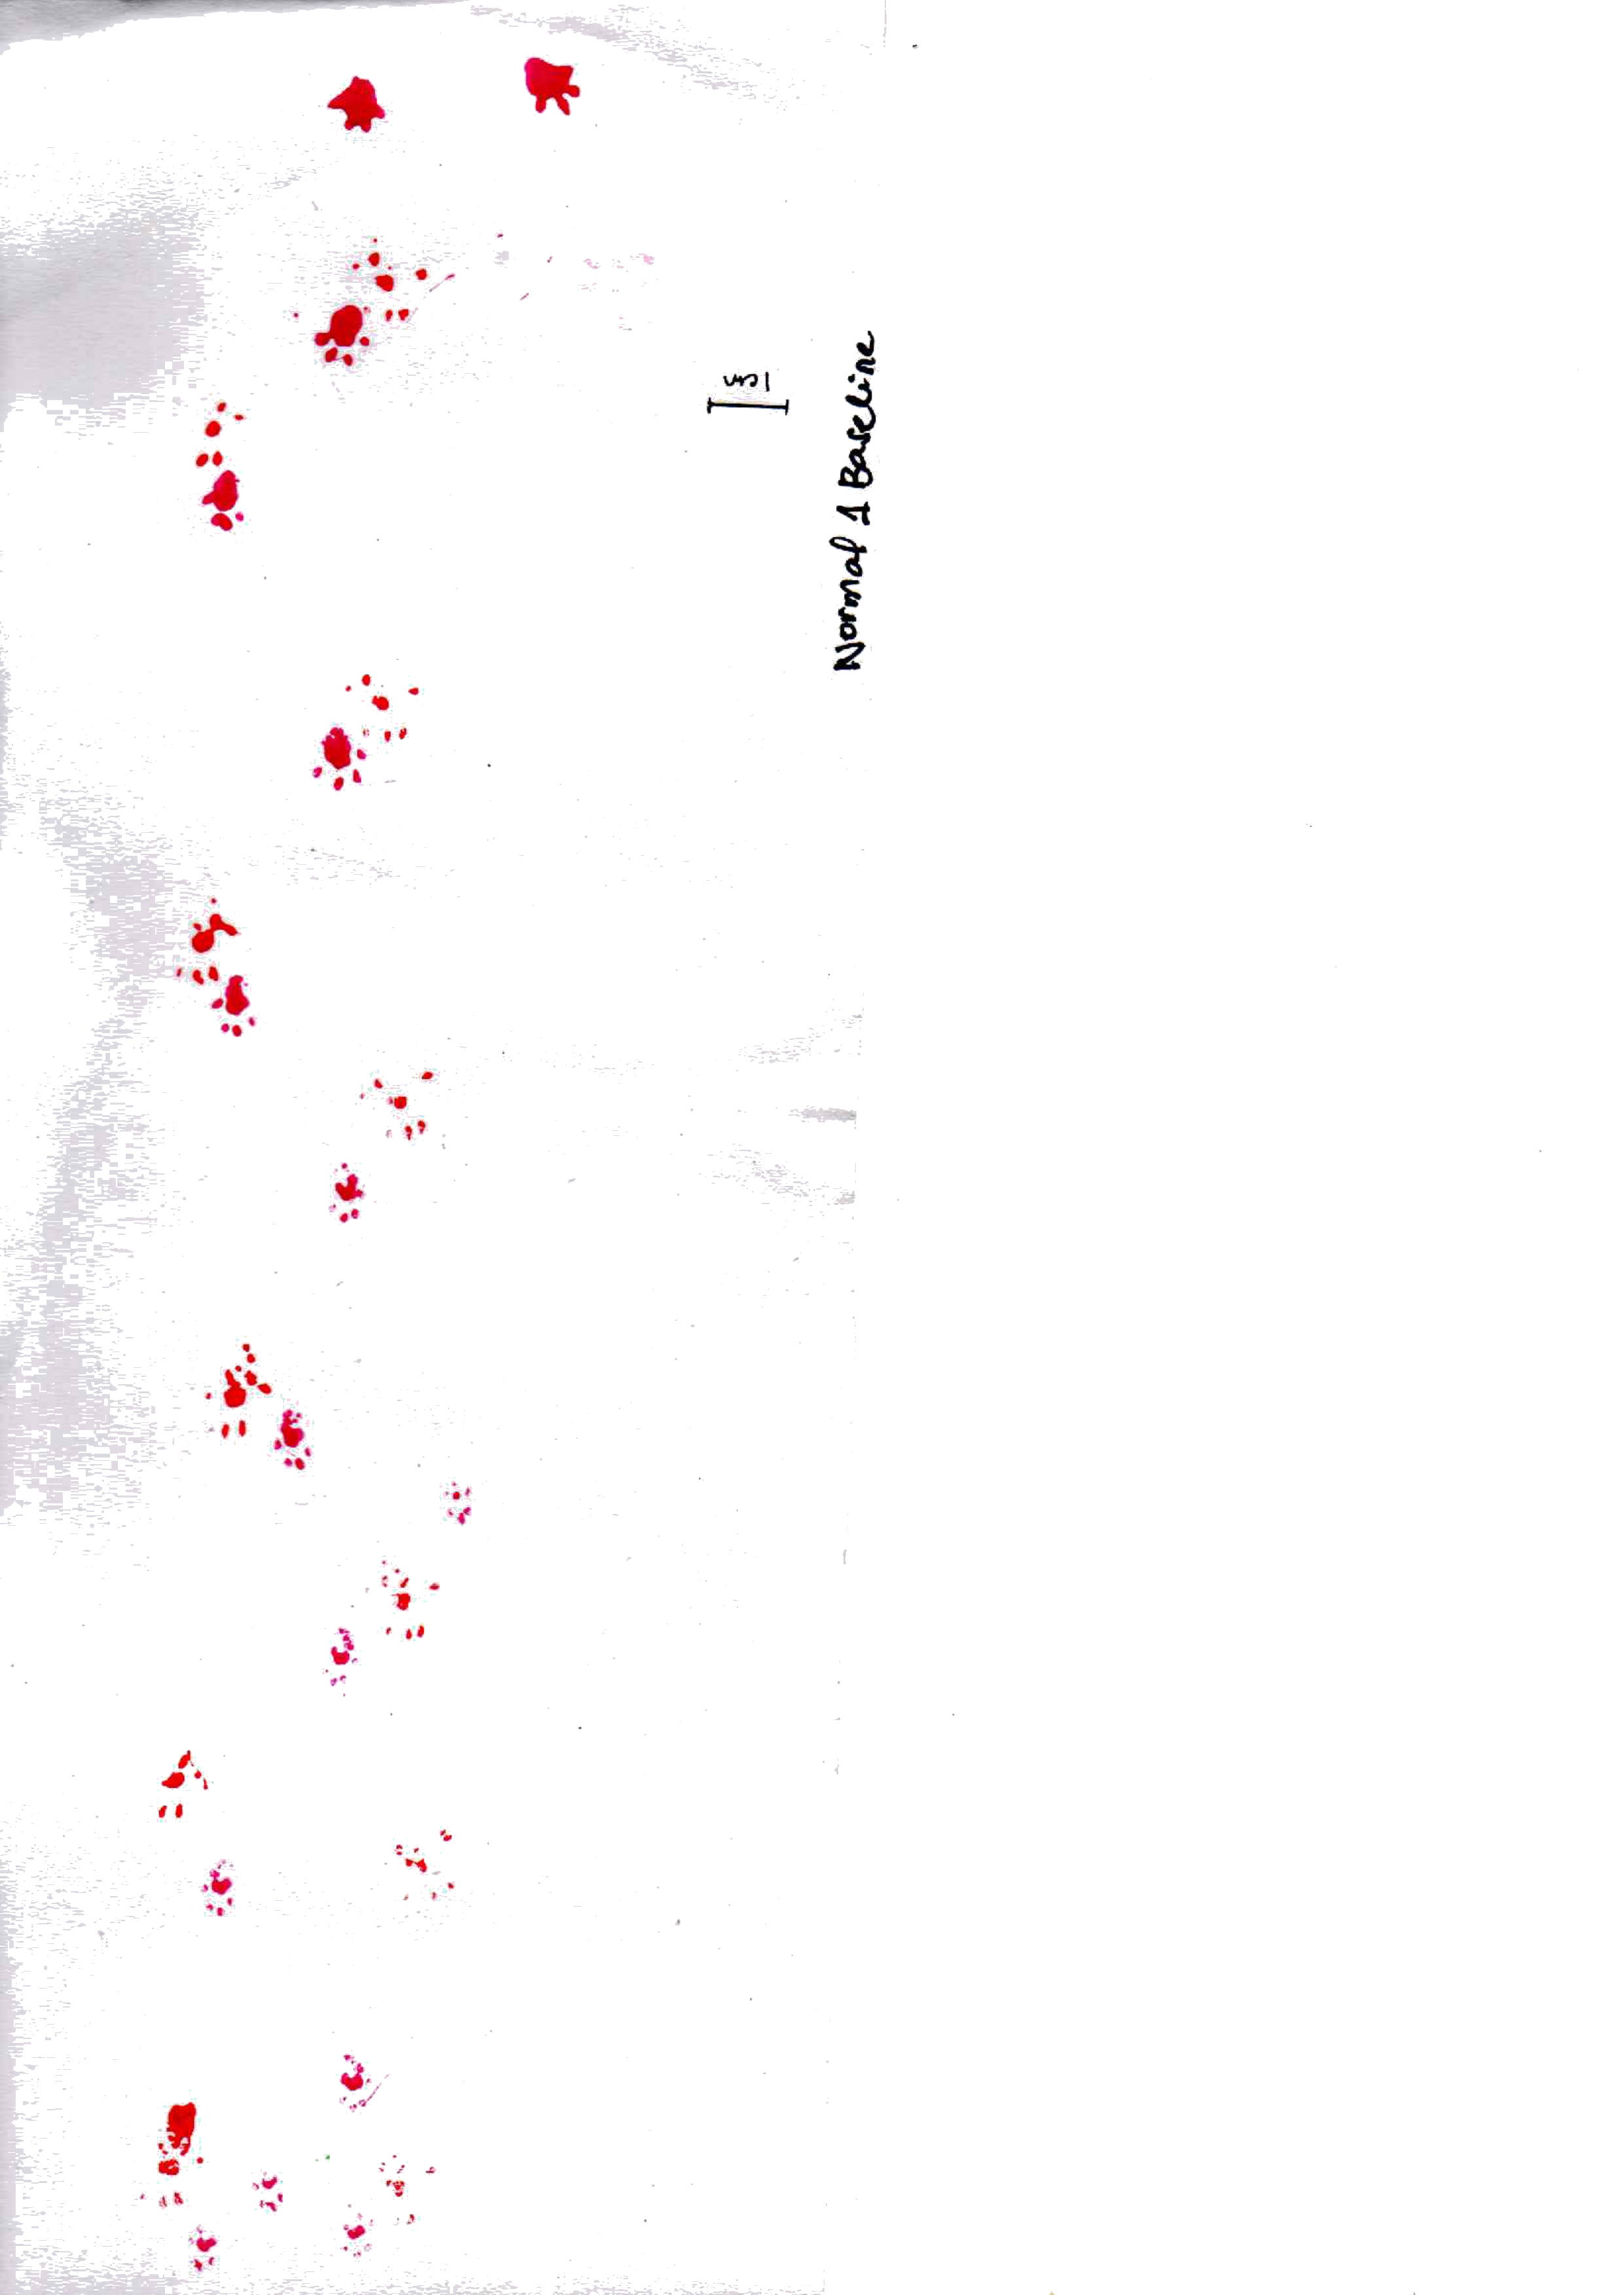 1cm
Normal 1 Baseline